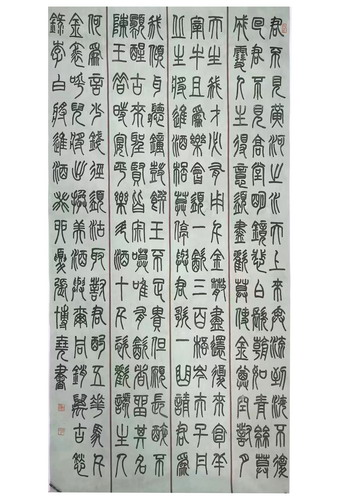 君不見黃河之水天上來奔流到海不復
回君不見高堂明鏡悲白髮朝如青絲暮
成雪人生得意須盡歡莫使金尊空對月
天生我材必有用千金散盡還復來烹羊
宰牛且爲樂會須一飲三百杯岑夫子丹
丘生將進酒杯莫停與君歌一曲請君爲
我傾耳聽鐘鼓饌玉不足貴但願長醉不
願醒古來聖賢皆寂寞唯有飲者留其名
陳王昔時宴平樂斗酒十千恣歡謔主人
何爲言少錢徑須沽取對君酌五花馬千
金裘呼兒將出換美酒與爾同銷萬古愁
錄李白將進酒張博堯書